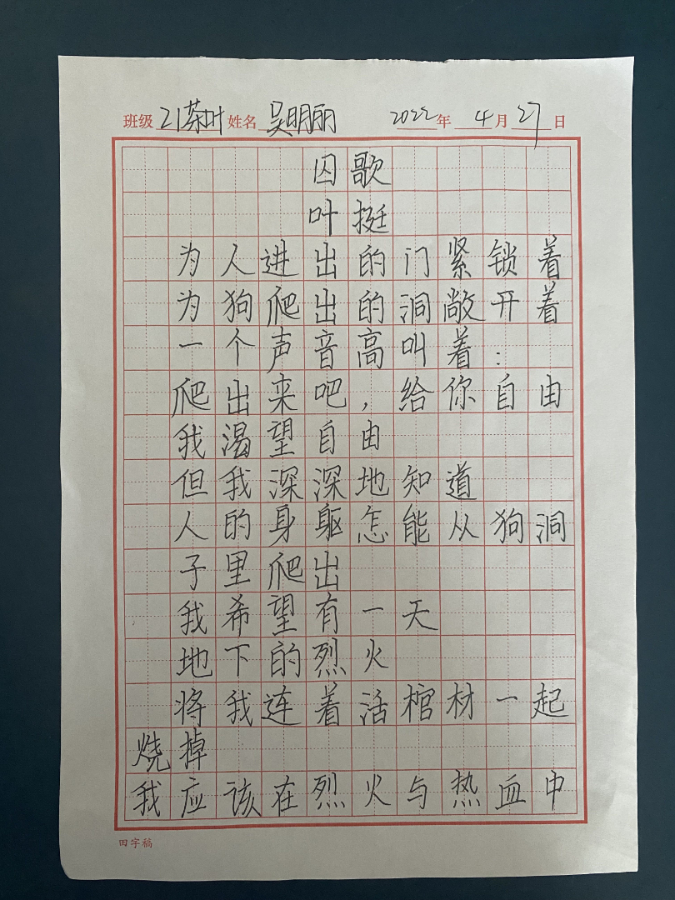 班级 21茶叶 姓名 吴明丽 2022年 4月 27日
囚歌
叶挺
为人进出的门紧锁着
为狗爬出的洞敞开着
一个声音高叫着：
爬出来吧，给你自由
我渴望自由
但我深深地知道
人的身躯怎能从狗洞
子里爬出
我希望有一天
地下的烈火
将我连着活棺材一起
烧掉
我应该在烈火与热血中
田字稿